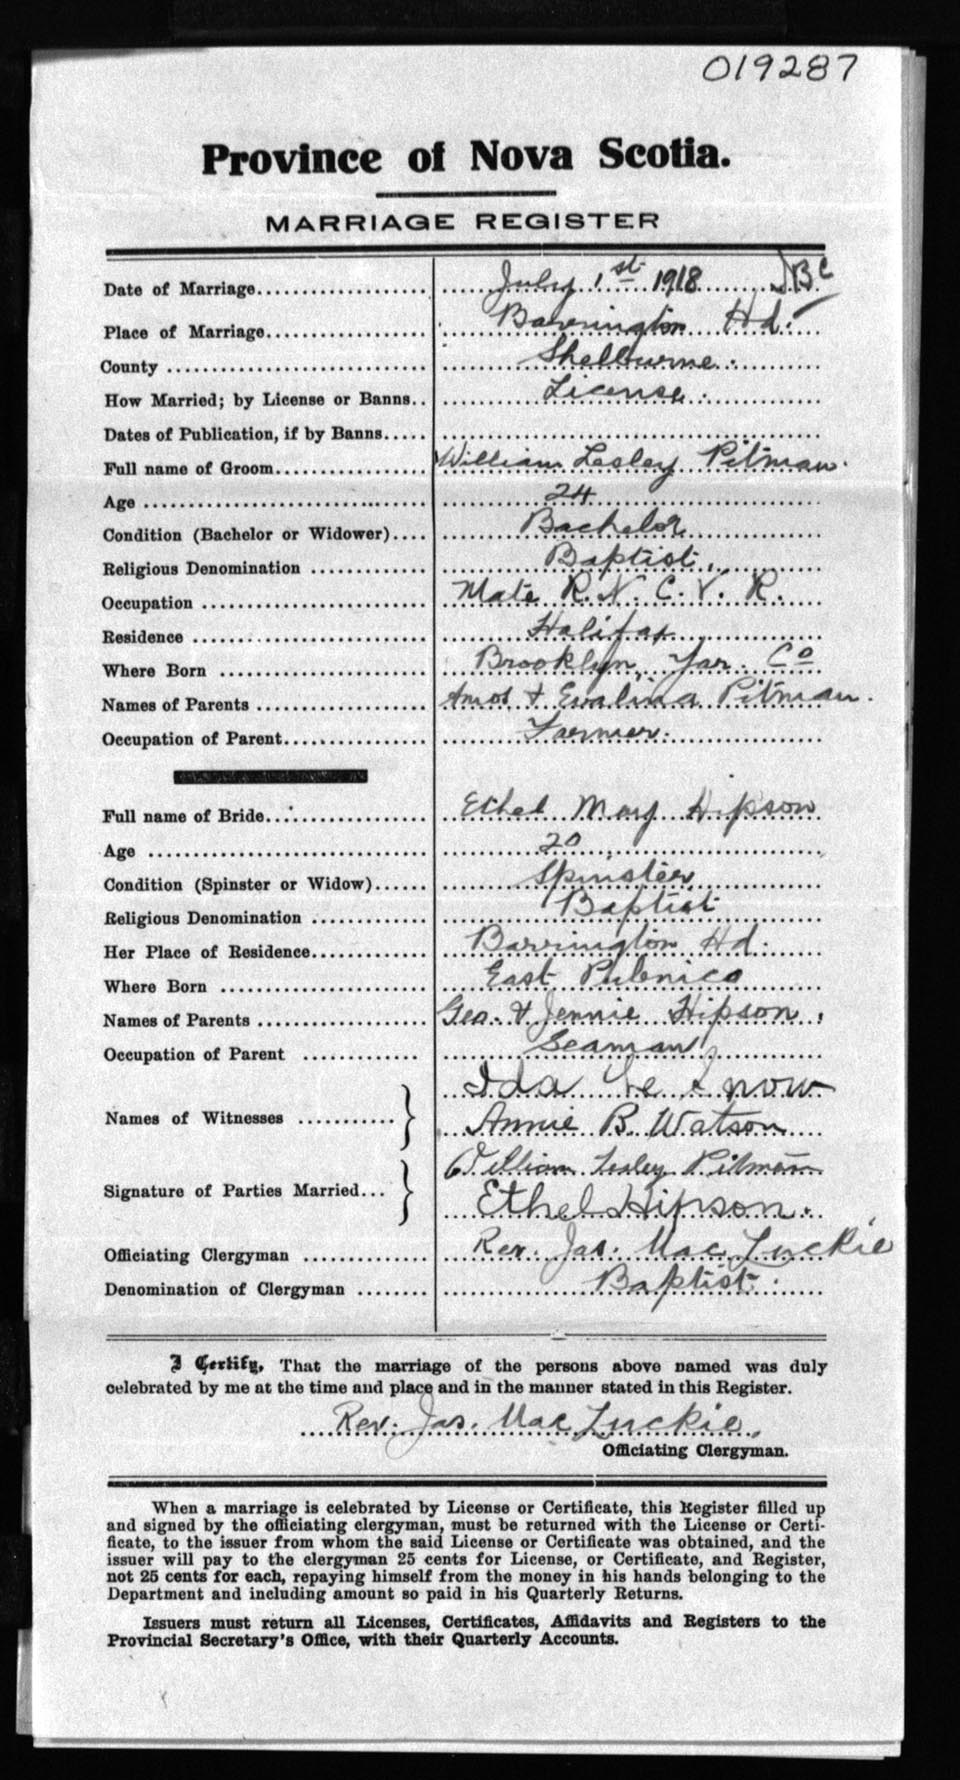 019287
Province of Nova Scotia.
MARRIAGE REGISTER
Date of Marriage.................... July 1st 1918
Place of Marriage................... Barrington Hd.
County ............................. Shelburne.
How Married; by License or Banns.. License.
Dates of Publication, if by Banns.....
Full name of Groom.................. William Lesley Pitman.
Age ............................... 24
Condition (Bachelor or Widower).... Bachelor
Religious Denomination ............. Baptist.
Occupation ......................... Mate R. N. C. V. R.
Residence .......................... Halifax
Where Born ......................... Brooklyn, Yar. Co
Names of Parents ................... Amos & Evalina Pitman.
Occupation of Parent................ Farmer.
Full name of Bride.................. Ethel Mary Hipson
Age ............................... 20
Condition (Spinster or Widow)...... Spinster
Religious Denomination ............. Baptist
Her Place of Residence.............. Barrington Hd.
Where Born ......................... East Pubnico
Names of Parents ................... Geo. & Jennie Hipson.
Occupation of Parent ............. Seaman
Ida Snow
Names of Witnesses ............
Annie B. Watson
William Lesley Pitman
Signature of Parties Married...
Ethel Hipson.
Officiating Clergyman .............. Rev. Jas. MacLuckie
Denomination of Clergyman ........ Baptist.
I Certify, That the marriage of the persons above named was duly
celebrated by me at the time and place and in the manner stated in this Register.
Rev. Jas. MacLuckie,
Officiating Clergyman.
When a marriage is celebrated by License or Certificate, this Register filled up
and signed by the officiating clergyman, must be returned with the License or Certi-
ficate, to the issuer from whom the said License or Certificate was obtained, and the
issuer will pay to the clergyman 25 cents for License, or Certificate, and Register,
not 25 cents for each, repaying himself from the money in his hands belonging to the
Department and including amount so paid in his Quarterly Returns.
Issuers must return all Licenses, Certificates, Affidavits and Registers to the
Provincial Secretary's Office, with their Quarterly Accounts.